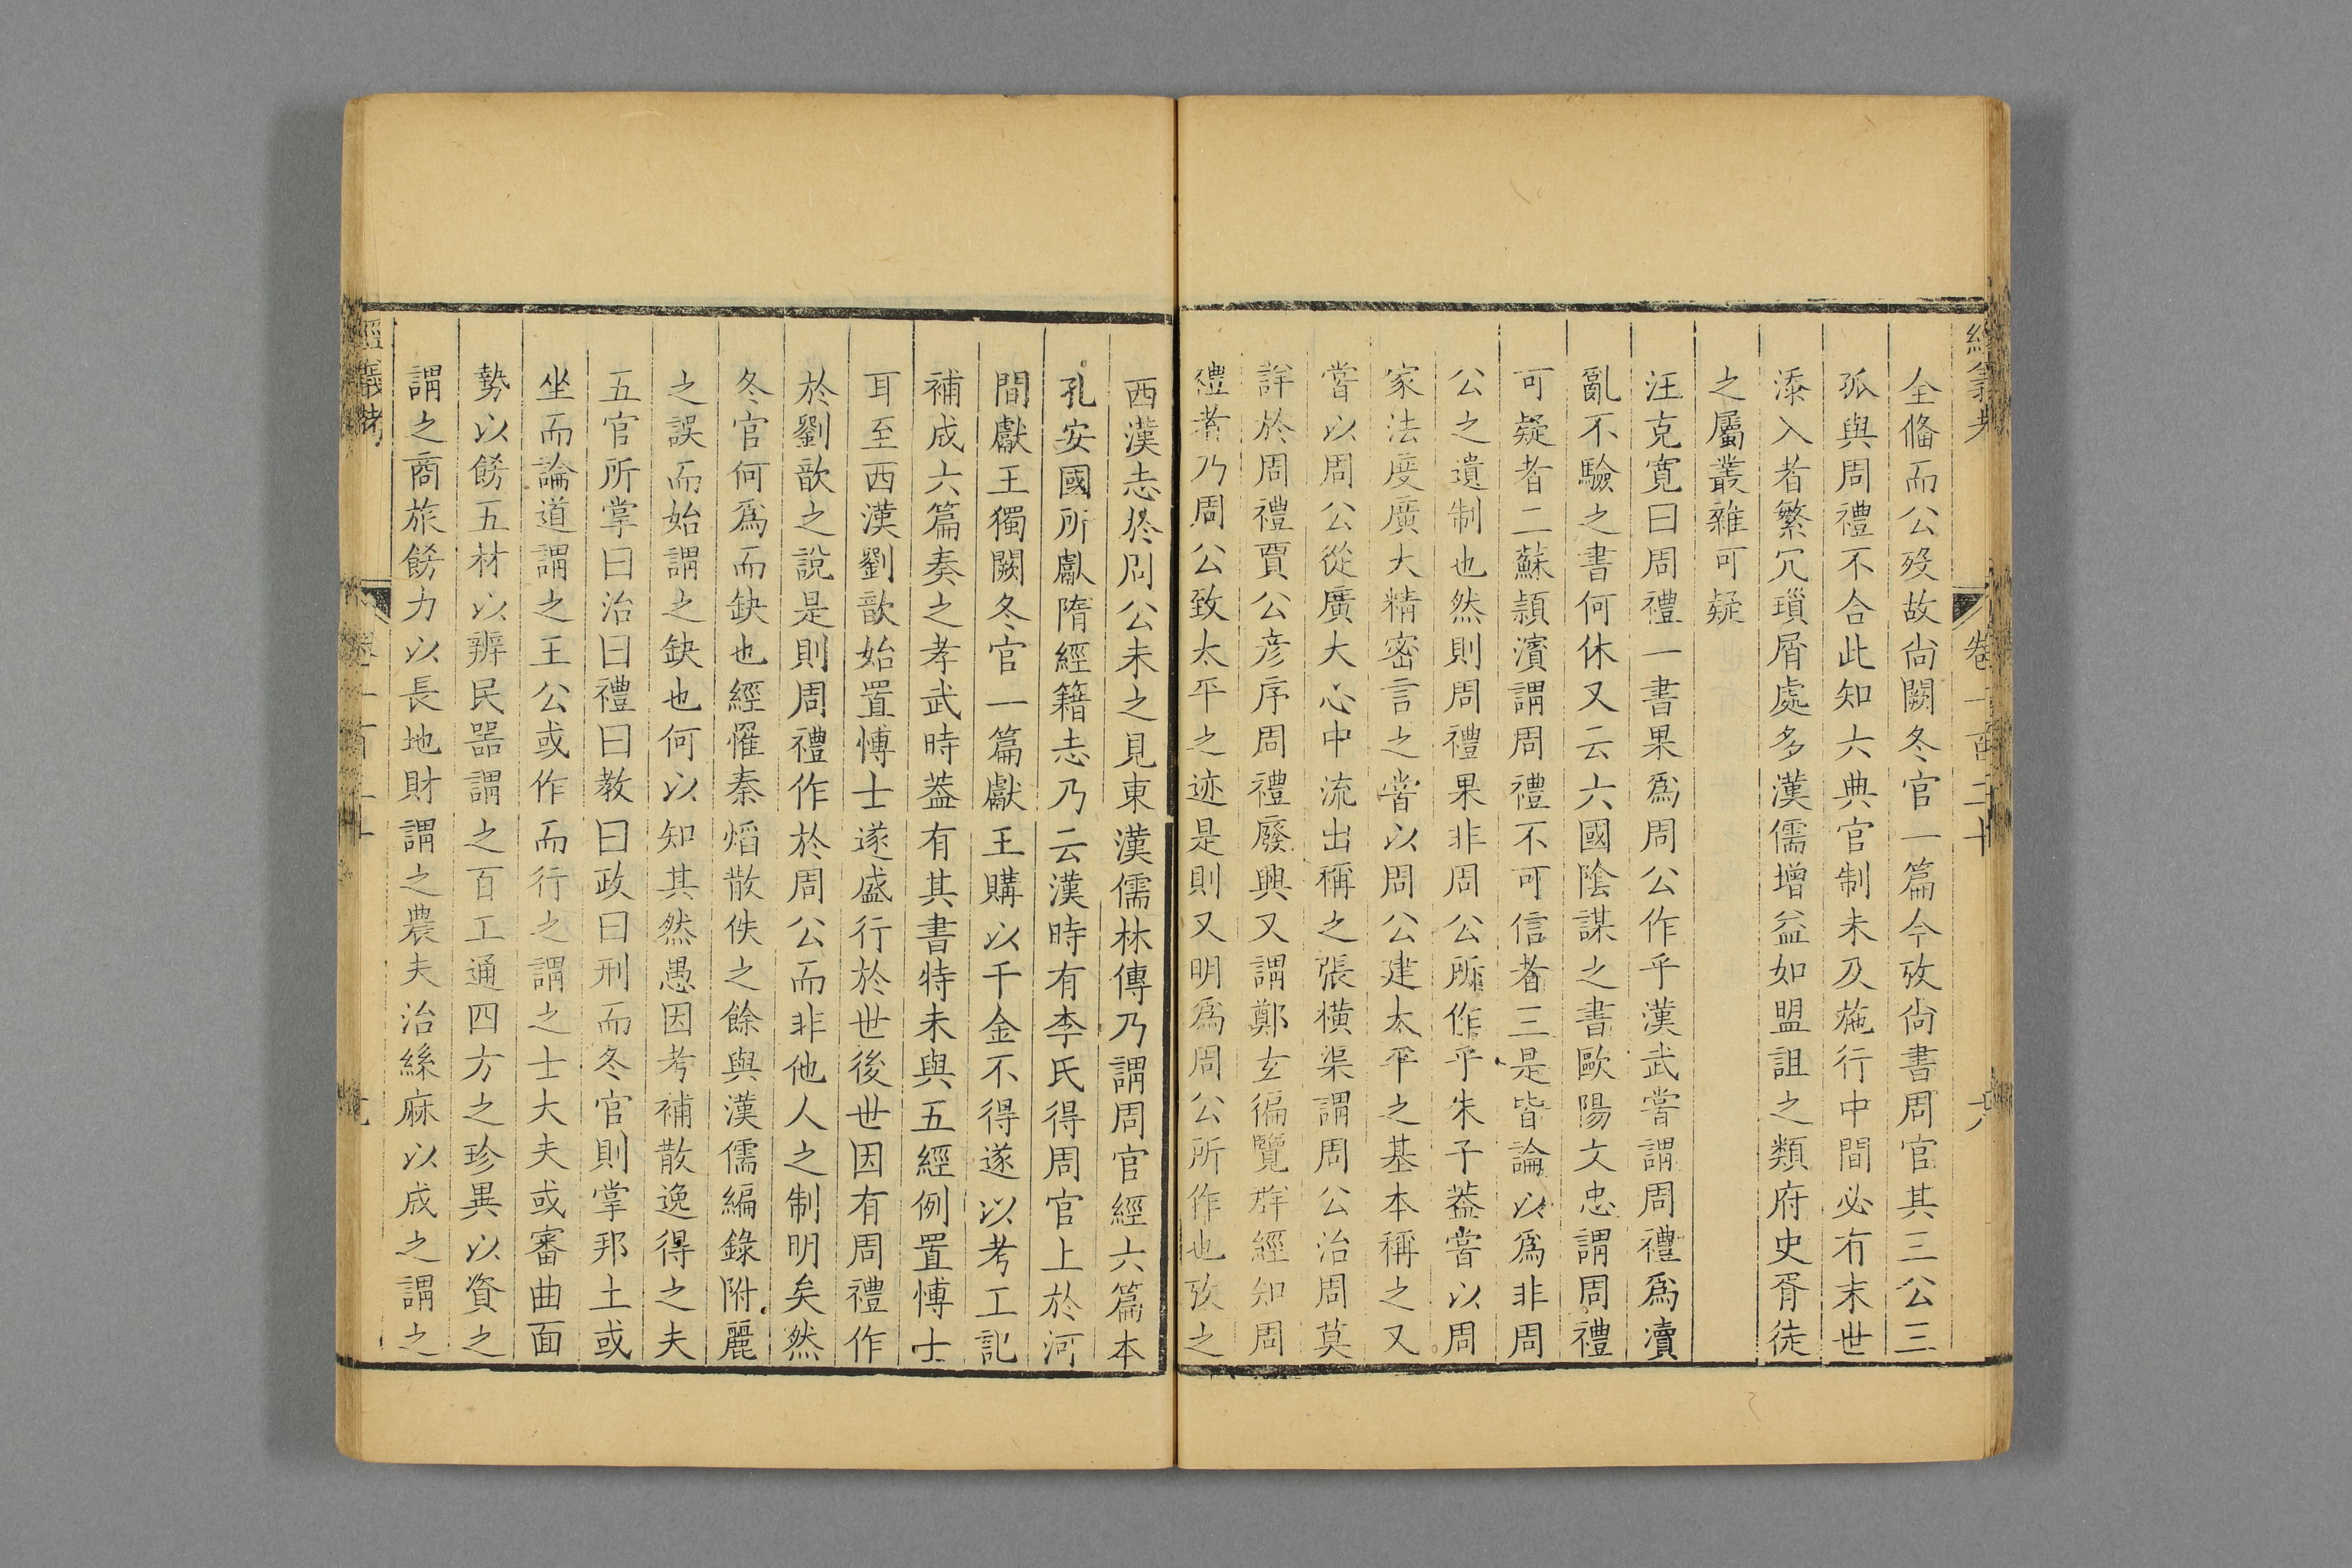 經義考
卷一百二十
六
全俻而公歿故尙闕冬官一篇今攷尙書周官其三公三
孤與周禮不合此知六典官制未及施行中間必有末世
添入者繁冗瑣屑處多漢儒增益如盟詛之類府史胥徒
之屬叢雜可疑
汪克寛曰周禮一書果爲周公作乎漢武嘗謂周禮爲瀆
亂不驗之書何休又云六國陰謀之書歐陽文忠謂周禮
可疑者二蘇潁濵謂周禮不可信者三是皆論以爲非周
公之遺制也然則周禮果非周公所作乎朱子葢嘗以周
家法度廣大精密言之嘗以周公建太平之基本稱之又
嘗以周公從廣大心中流出稱之張横渠謂周公治周莫
詳於周禮賈公彦序周禮廢興又謂鄭玄徧覽群經知周
禮者乃周公致太平之迹是則又明爲周公所作也攷之
西漢志於周公未之見東漢儒林傳乃謂周官經六篇本
孔安國所獻隋經籍志乃云漢時有李氏得周官上於河
間獻王獨闕冬官一篇獻王購以千金不得遂以考工記
補成六篇奏之孝武時葢有其書特未與五經例置博士
耳至西漢劉歆始置博士遂盛行於世後世因有周禮作
於劉歆之說是則周禮作於周公而非他人之制明矣然
冬官何爲而缺也經罹秦熖散佚之餘與漢儒編錄附麗
之誤而始謂之缺也何以知其然愚因考補散逸得之夫
五官所掌曰治曰禮曰教曰政曰刑而冬官則掌邦土或
坐而論道謂之王公或作而行之謂之士大夫或審曲面
勢以飭五材以辨民噐謂之百工通四方之珍異以資之
謂之商旅飭力以長地財謂之農夫治絲麻以成之謂之
經義考
卷一百二十